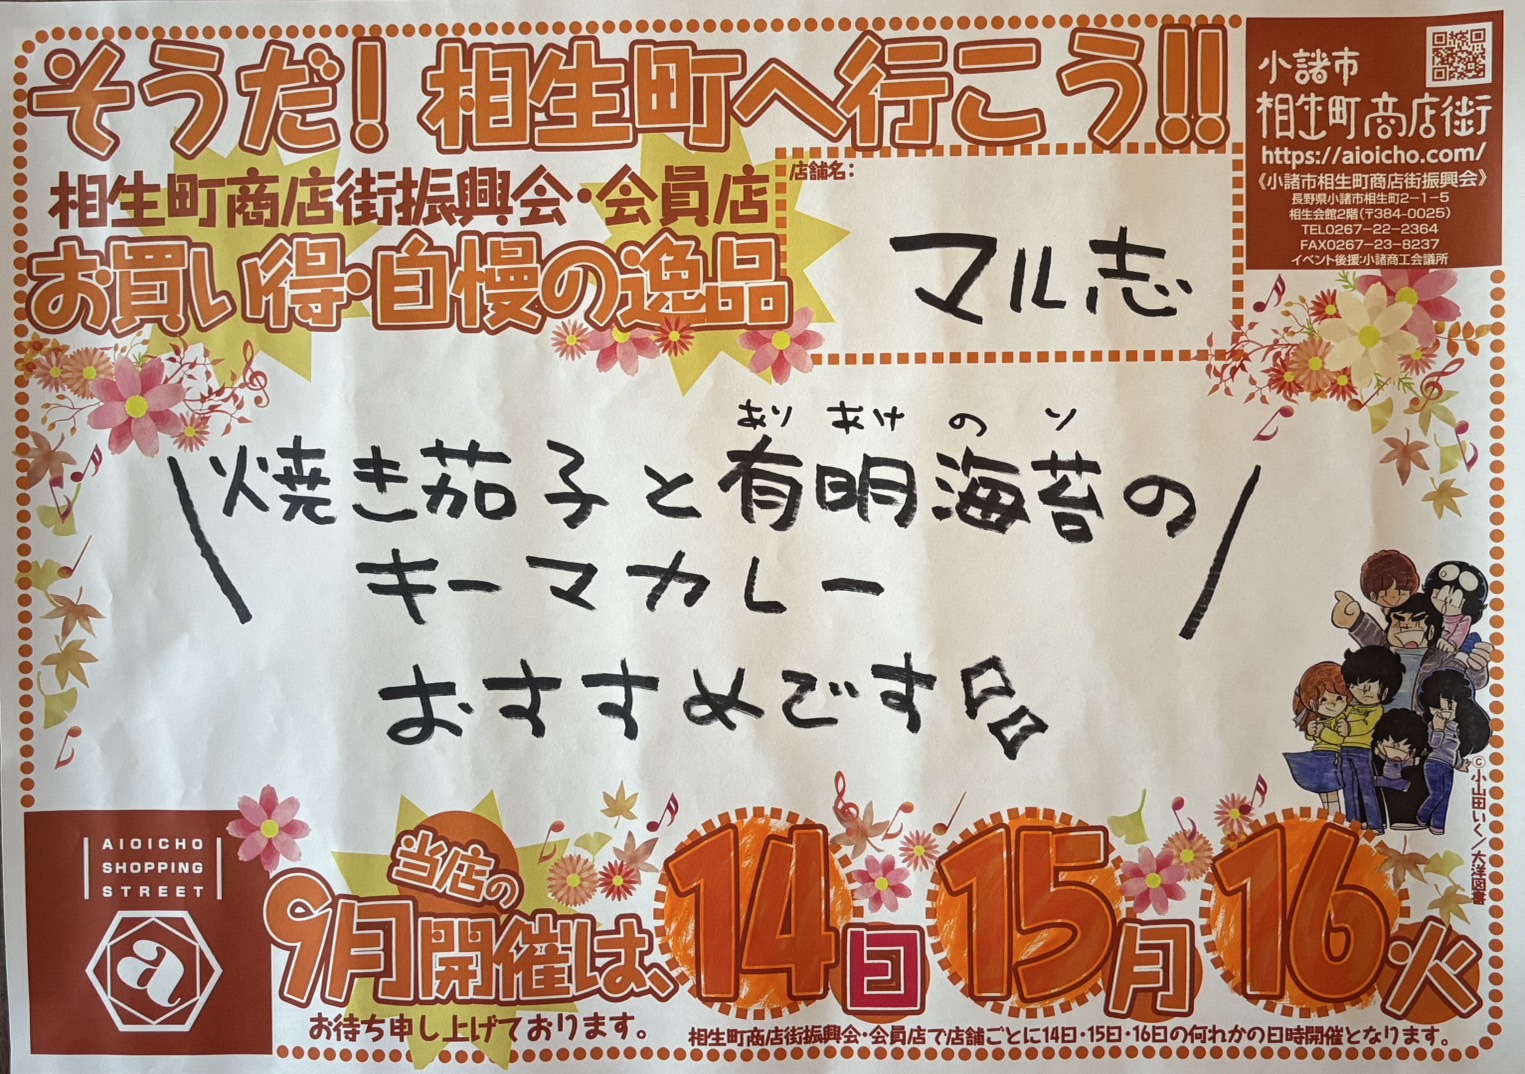 そうだ!相生町へ行こう!!
相生町商店街振興会・会員店
お買い得・自慢の逸品
店舗名:
マル志
小諸市
相生町商店街
https://aioicho.com/
《小諸市相生町商店街振興会》
長野県小諸市相生町2-1-5
相生会館2階(〒384-0025)
TEL0267-22-2364
FAX0267-23-8237
イベント後援:小諸商工会議所
ありあけのり
焼き茄子と有明海苔の
キーマカレー
おすすめです
©小山田いく/大洋図書
AIOICHO
SHOPPING
STREET
a
当店の
9月開催は、14日15月16火
お待ち申し上げております。
相生町商店街振興会・会員店で店舗ごとに14日・15日・16日の何れかの日時開催となります。